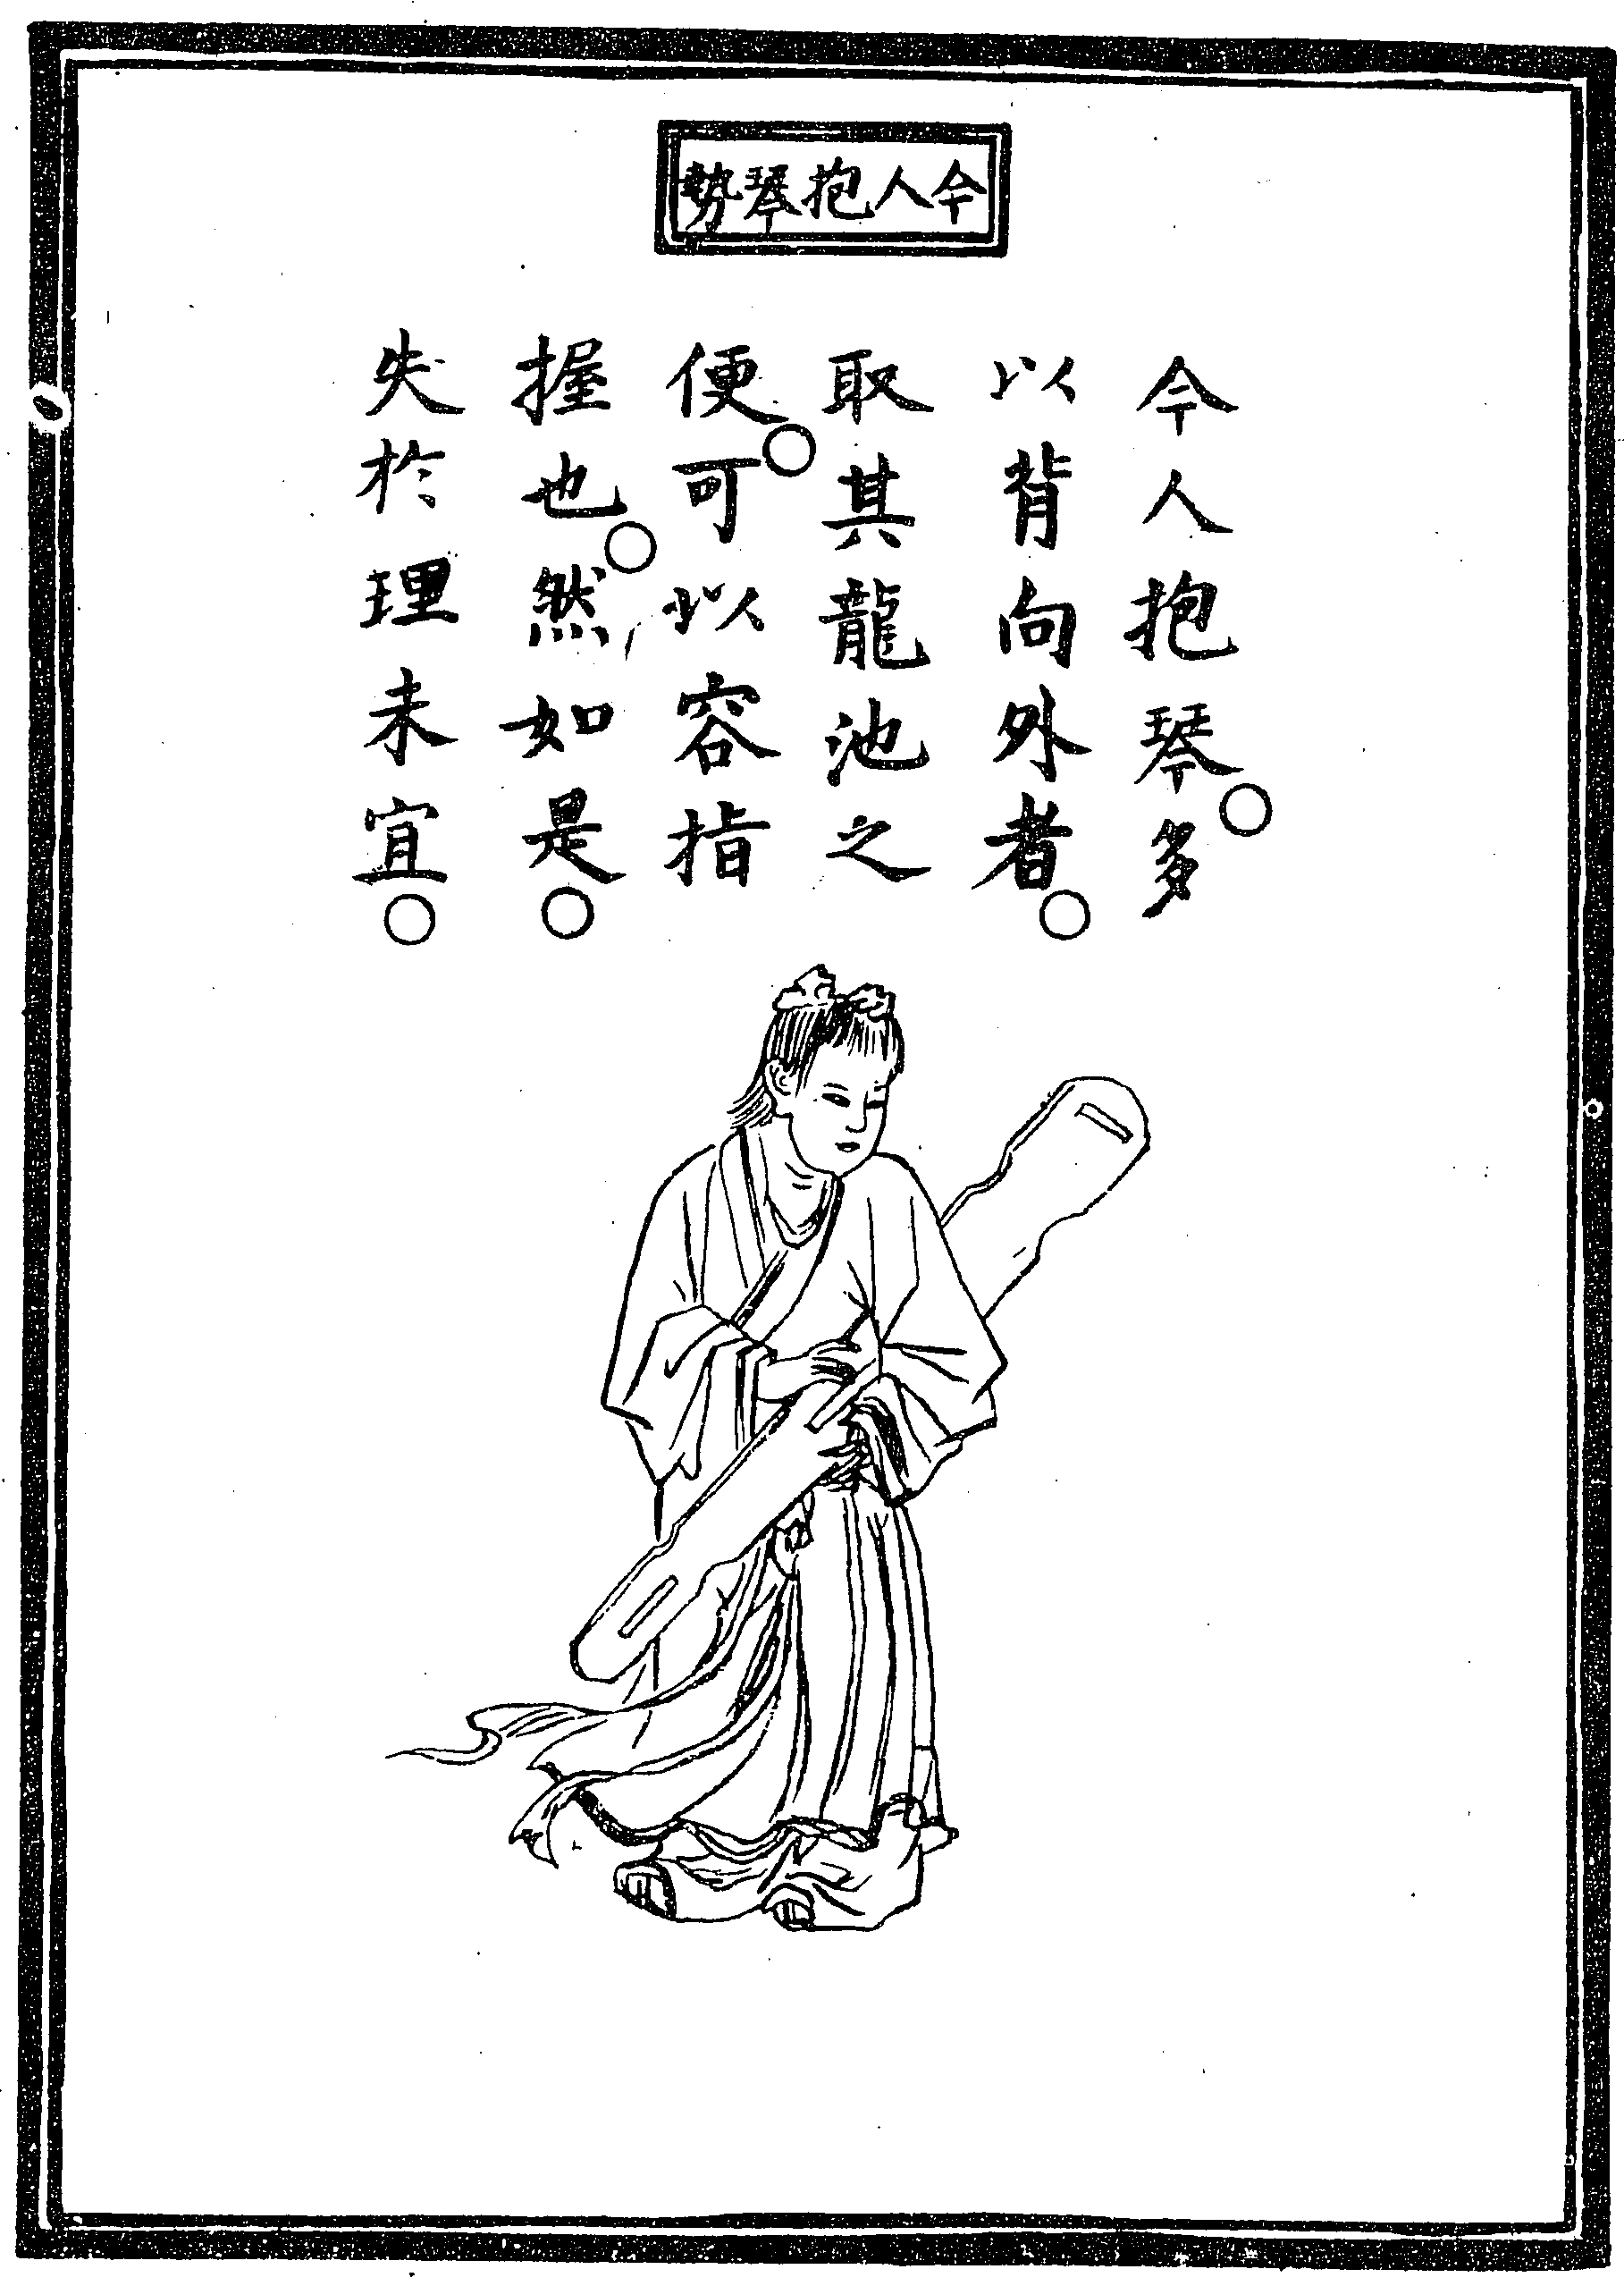 今人抱琴勢
今人抱琴○多
以背向外者○
取其龍池之
便○可以容指
握也○然如是○
失於理未宜○